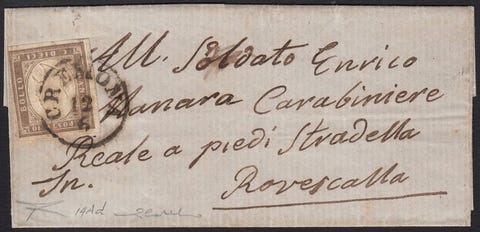 C. DIECI
BOLLO
CREMONA
12
All. Soldato Enrico
Manara Carabiniere
Reale a piedi Stradella
In. Rovescalla
14Ad